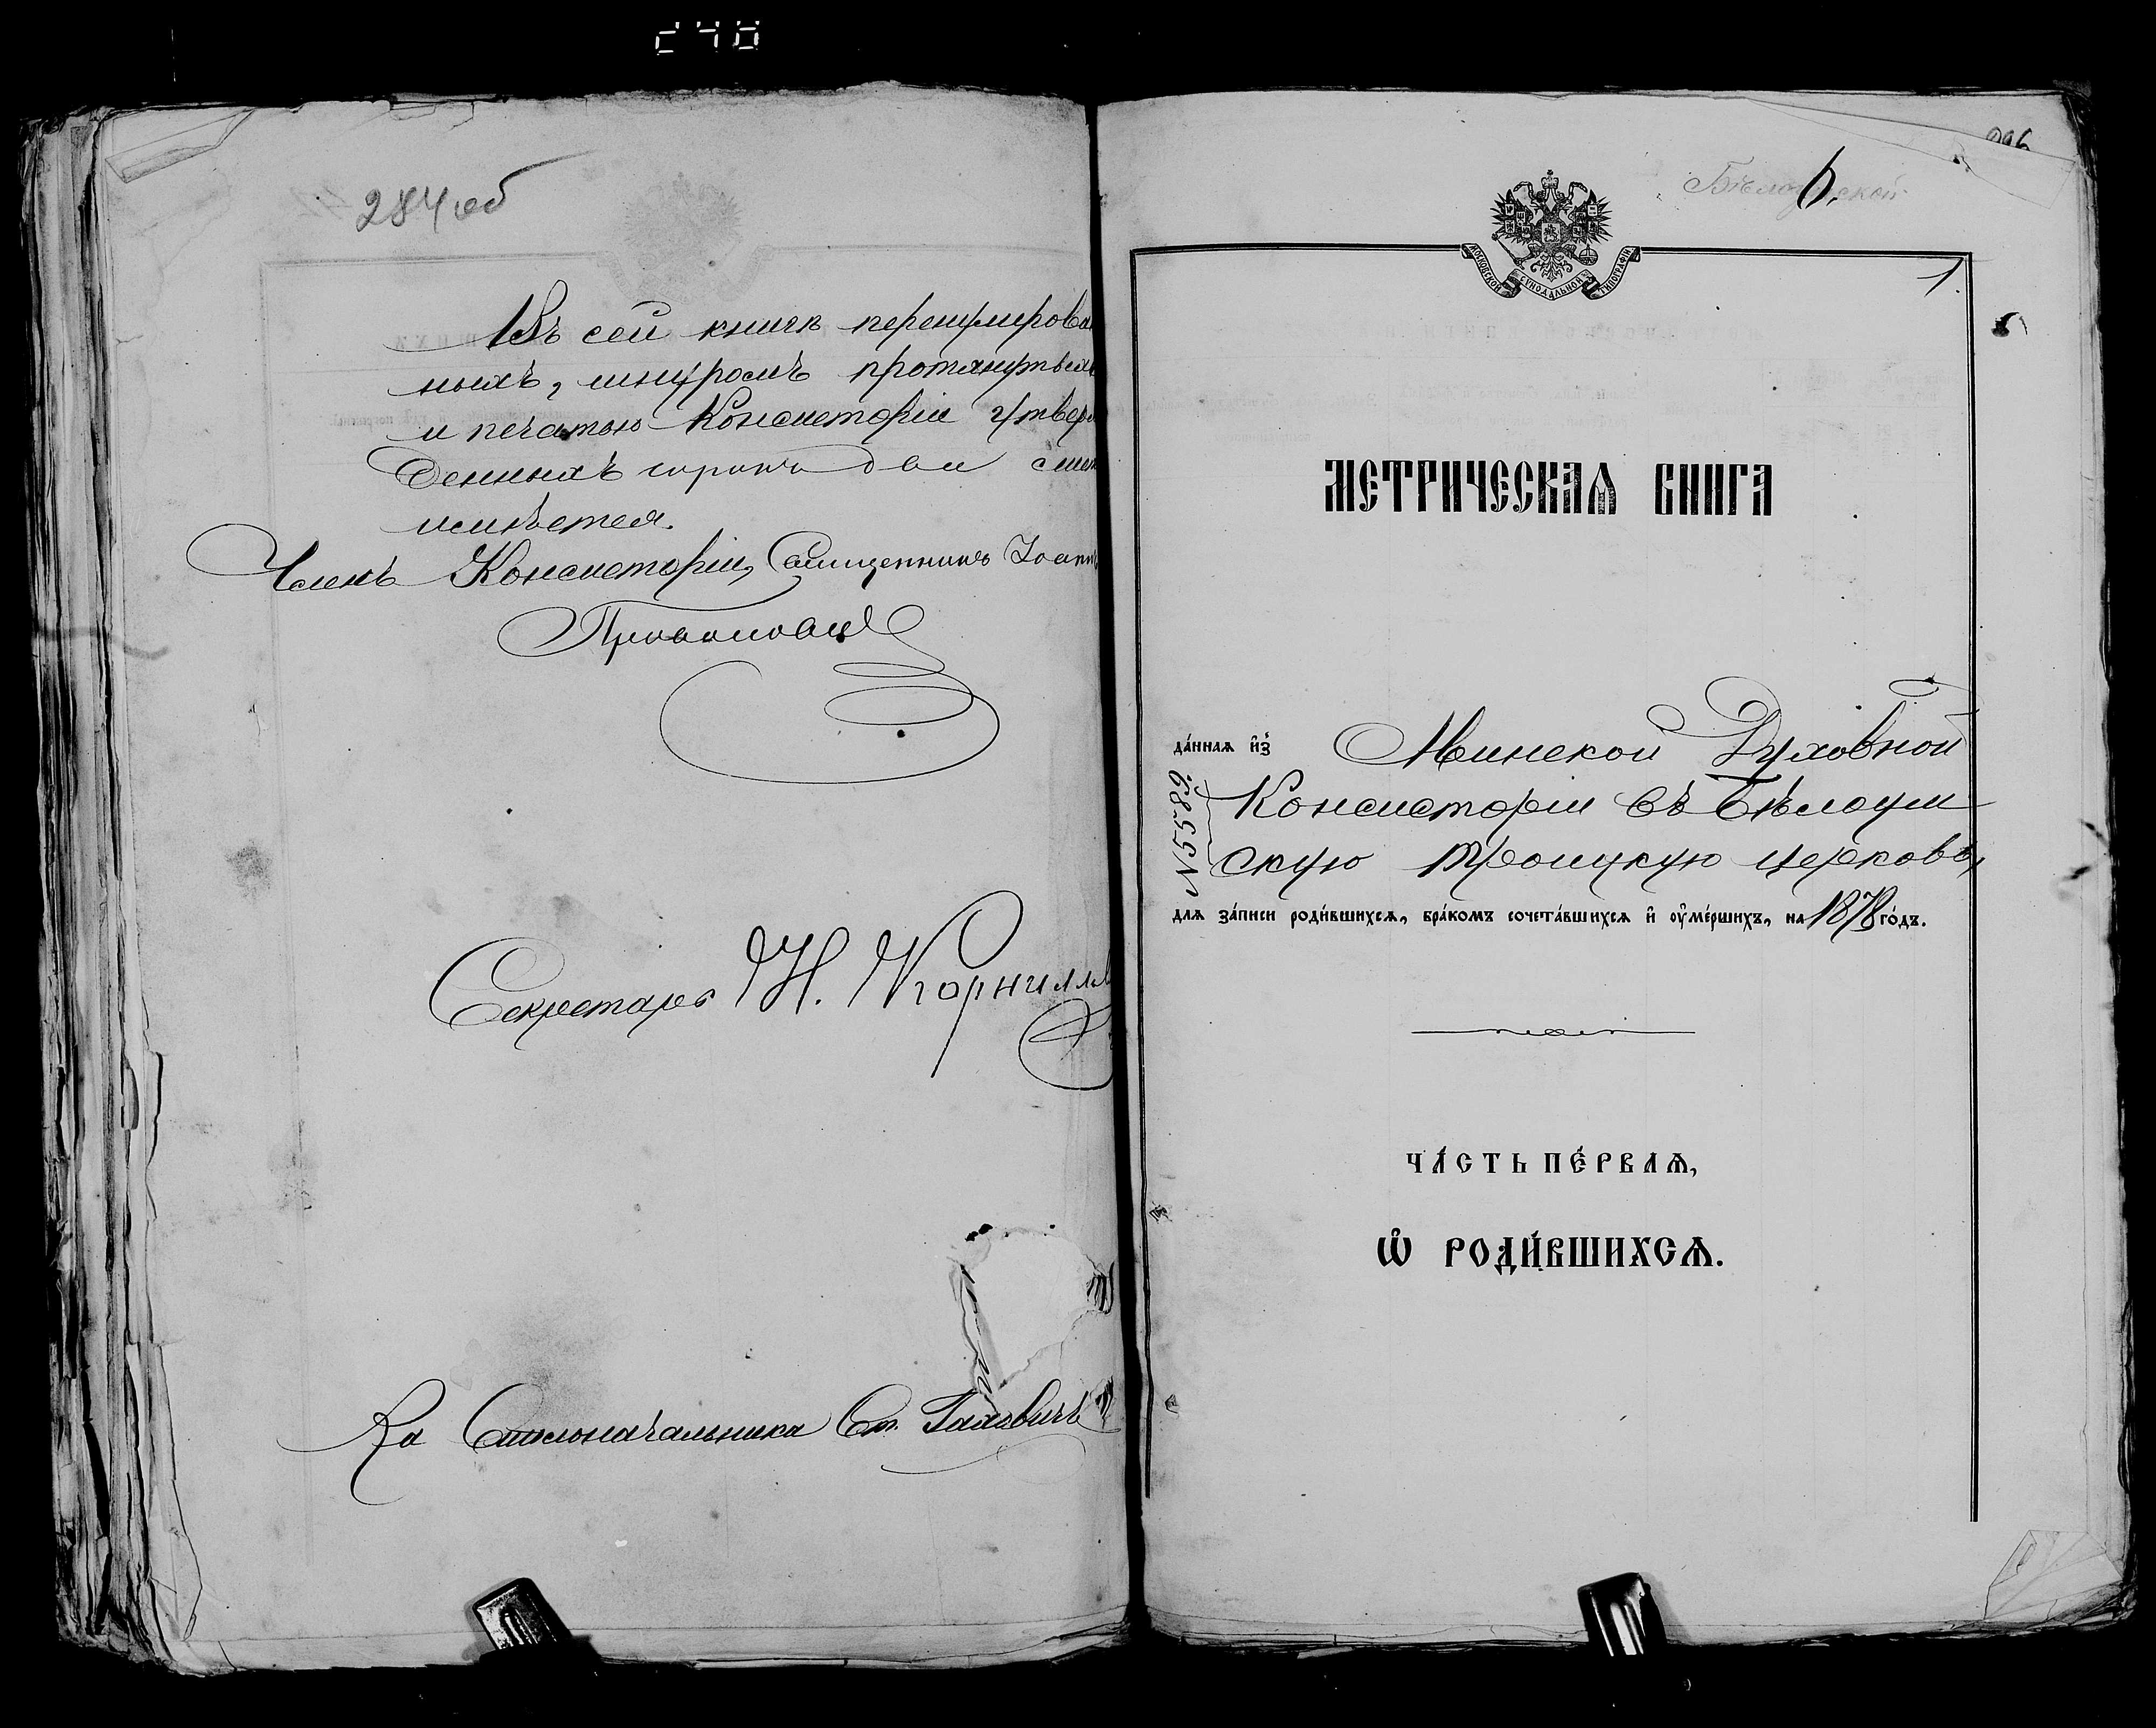 284 об
Въ сей книгѣ перенумерован
ныхъ, шнуромъ протянутыхъ
и печатью Консисторіи утверж
денныхъ сорокъ два
имѣется.
Членъ Консисторіи, Священникъ Іоаннъ
Секретарь Н. Корнил
За Столоначальника Ст.
6.
МОСКОВСКОЙ СУНОДАЛЬНОЙ ТИПОГРАФІИ
1.
МЕТРИЧЕСКАѦ КНИГА
да́ннаѧ и҆зъ Минской Духовной
Консисторіи въ Бѣлоуш
скую Троицкую церковь,
№ 5589
для за́писи роди́вшихсѧ, бра́комъ сочета́вшихсѧ и҆ оу҆ме́ршихъ, на 1878 го́дъ.
ЧА́СТЬ ПЕ́РВАѦ,
Ѡ҆ РОДИ́ВШИХСѦ.